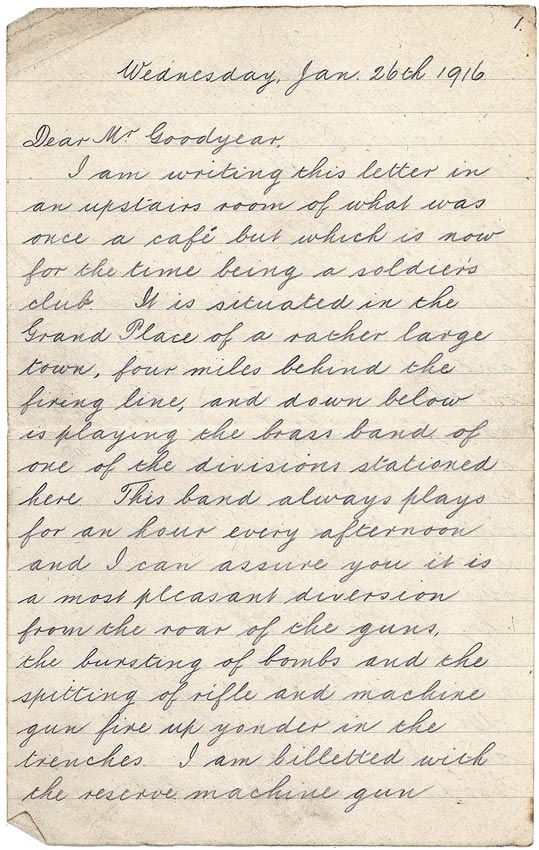 1.
Wednesday, Jan. 26th 1916
Dear Mr Goodyear,
I am writing this letter in
an upstairs room of what was
once a café but which is now
for the time being a soldier's
club. It is situated in the
Grand Place of a rather large
town, four miles behind the
firing line, and down below
is playing the brass band of
one of the divisions stationed
here. This band always plays
for an hour every afternoon
and I can assure you it is
a most pleasant diversion
from the roar of the guns,
the bursting of bombs and the
spitting of rifle and machine
gun fire up yonder in the
trenches. I am billetted with
the reserve machine gun